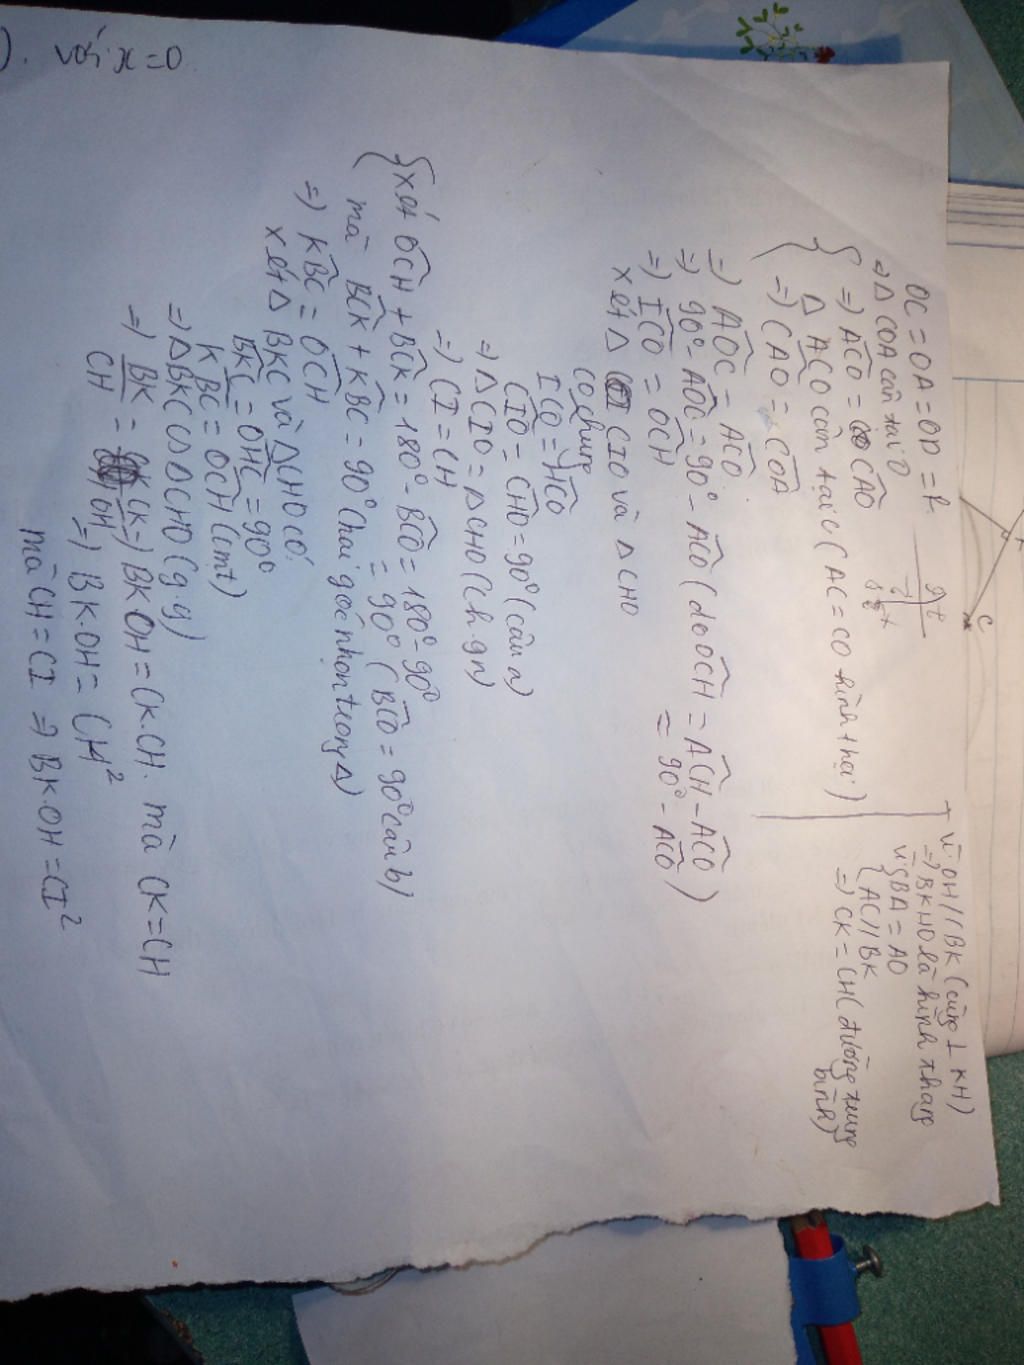 OC = OA = OD = R
⇒ Δ COA cân tại O
⇒ ACO = CAO
Δ ACO cân tại C (AC = CO hình thoi)
⇒ CAO = COA
⇒ AOC = ACO
⇒ 90° - AOC = 90° - ACO (do OCH = ACH - ACO
= 90° - ACO)
⇒ ICO = OCH
xét Δ CIO và Δ CHO
CO chung
ICO = HCO
CIO = CHO = 90° (câu a)
⇒ Δ CIO = Δ CHO (ch.gn)
⇒ CI = CH
xét OCH + BCK = 180° - BCO = 180° - 90°
= 90° (BCO = 90° câu b)
mà BCK + KBC = 90° (hai góc nhọn trong Δ)
⇒ KBC = OCH
xét Δ BKC và Δ CHO có:
BKC = OHC = 90°
KBC = OCH (cmt)
⇒ Δ BKC ∽ Δ CHO (g.g)
⇒ BK/CH = CK/OH ⇒ BK.OH = CK.CH. mà CK = CH
⇒ BK.OH = CH²
mà CH = CI ⇒ BK.OH = CI²
vì OH // BK (cùng ⊥ KH)
⇒ BKHO là hình thang
vì BA = AO
AC // BK
⇒ CK = CH (đường trung
bình)
gt
C
). với x = 0